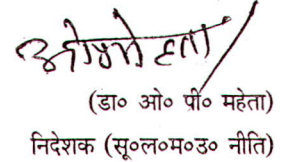 (डा० ओ० पी० महेता)
निदेशक (सू०ल०म०उ० नीति)